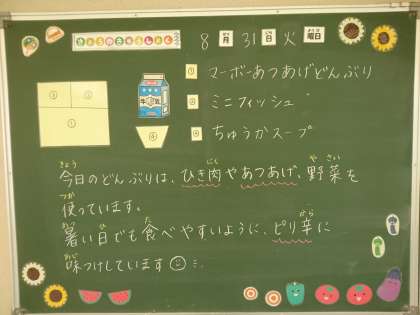 きょうのきゅうしょく
8月31日火曜日
① マーボーあつあげどんぶり
② ミニフィッシュ
④ ちゅうかスープ
② ③
①
牛乳
④
今日のどんぶりは、ひき肉やあつあげ、野菜を
使っています。
暑い日でも食べやすいように、ピリ辛に
味つけしています